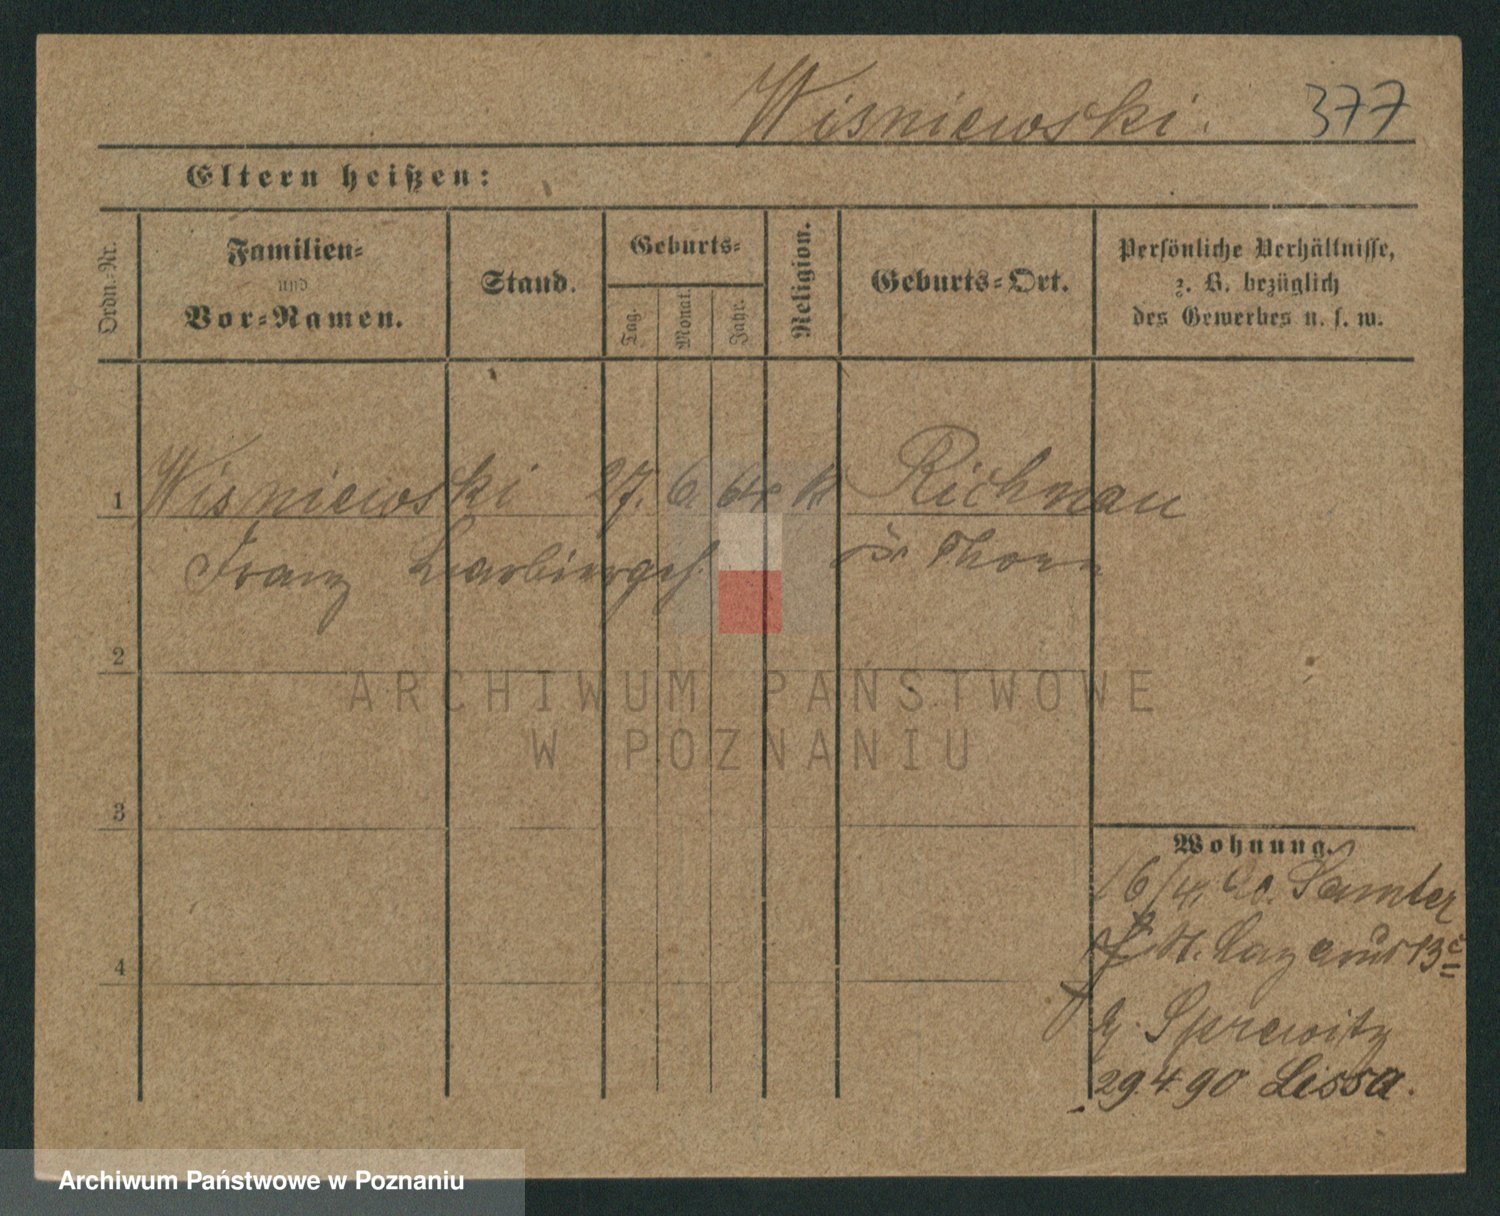 Wisniewski. 377
Eltern heißen:
Ordn.-Nr.
Familien-
und
Vor-Namen.
Stand.
Geburts-
Tag.
Monat.
Jahr.
Religion.
Geburts-Ort.
Persönliche Verhältnisse,
z. B. bezüglich
des Gewerbes u. s. w.
1 Wisniewski 27. 6. 64 k Richnau
Franz Barbiergeh. Kr. Thorn
2
ARCHIWUM PAŃSTWOWE
W POZNANIU
3
Wohnung.
16/4. 90. Samter
St. Lazarus 13c
4
b. Sprewitz
29.4.90 Lissa.
Archiwum Państwowe w Poznaniu